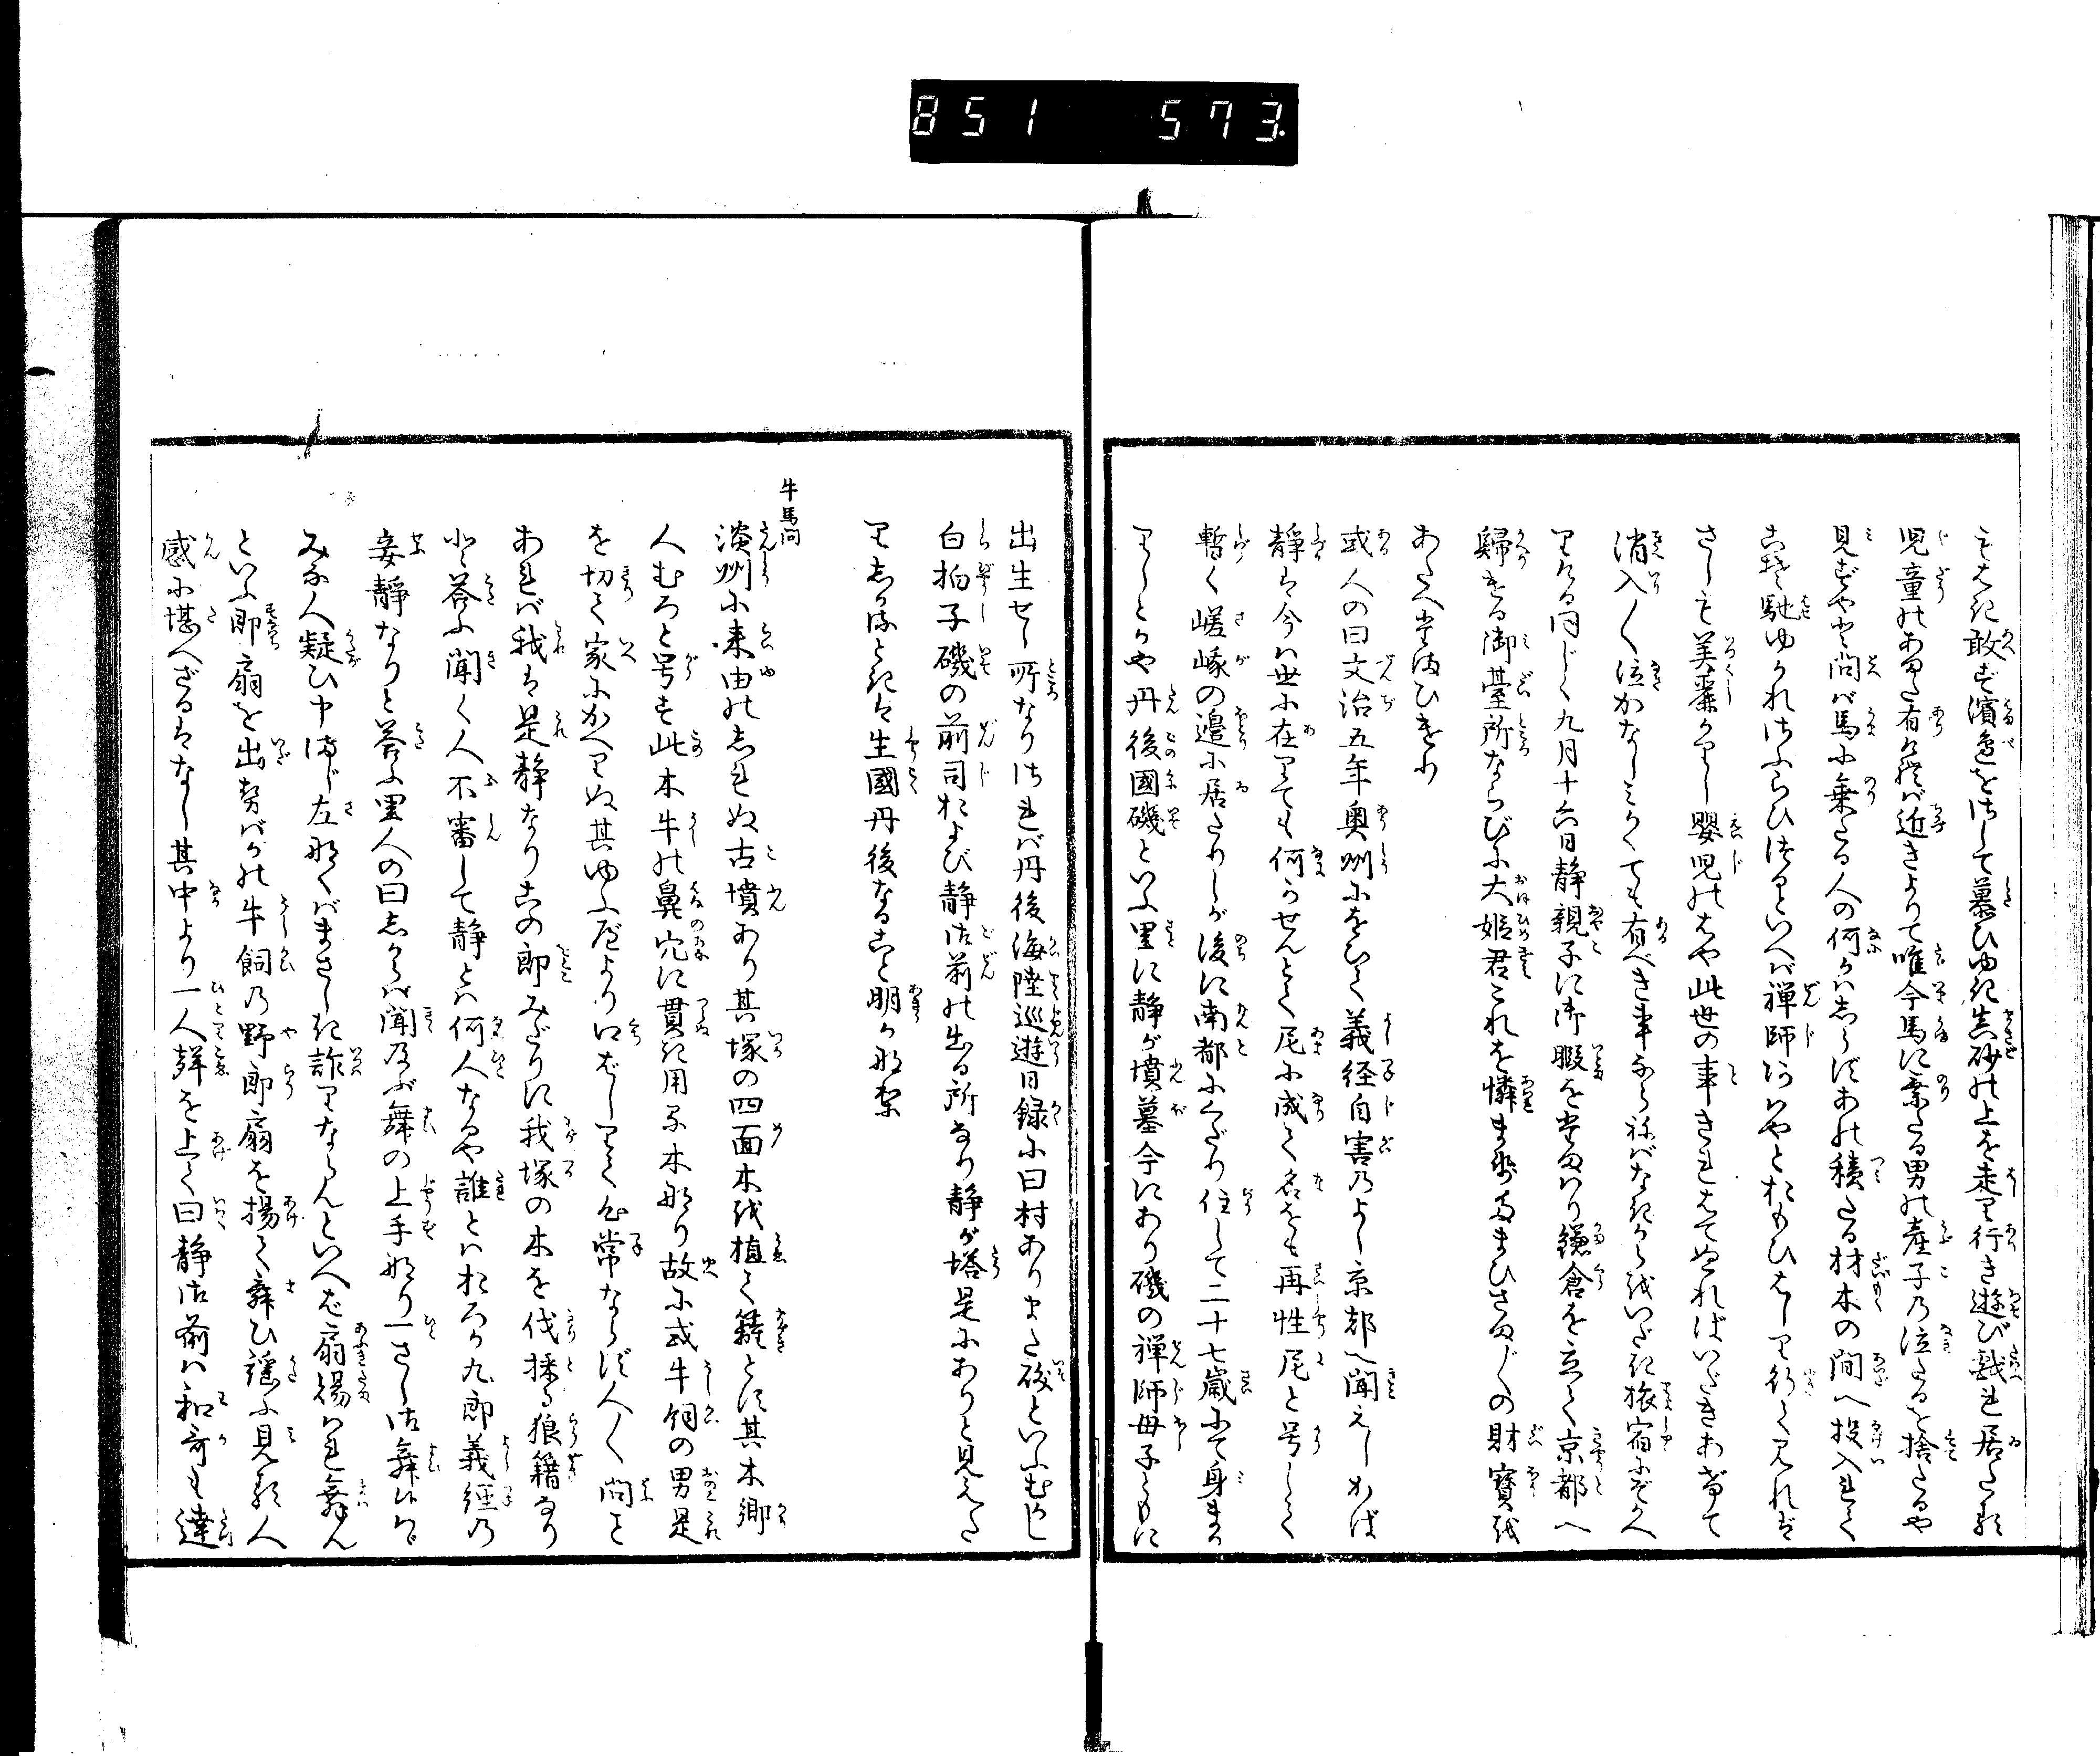 851 573
もなく敢ず濱邊をさして慕ひゆく真砂の上を走り行き遊び戯れ居たる
児童のあまた有ければ近きよりて唯今馬に乗たる男の産子の泣たるを捨たるや
見ずやと問ば馬に乗たる人の何かはしらずあの積たる材木の間へ投入れて
こそ馳ゆかれさふらひつれといへば禅師はやとおもひはしり行て見れば
さしも美麗かりし嬰児のはや此世の事きれはてぬればいだきあげて
消入〳〵泣かなしみしかくても有べき事ならねばなく〳〵いだき旅宿にぞかへ
りける同じく九月十六日静親子に御暇をたまはり鎌倉を立て京都へ
歸きる御臺所ならびに大姫君これを憐ませたまひさま〴〵の財寶を
あたへたまひきとぞ
或人の曰文治五年奥州にをひて義経自害のよし京都へ聞えしかば
静は今は世に在りても何かせんとて尼に成て名をも再性尼と号して
暫く嵯峨の邉に居たりしが後に南都にくだり住して二十七歳にて身ま
りしとかや丹後國磯といふ里に静が墳墓今にあり磯の禅師母子ともに
出生せし所なりされば丹後海陸巡遊日録に曰村ありまた磯といふむかし
白拍子磯の前司および静御前の出る所なり静が塔是にありと見えた
りしかるときは生國丹後なること明か那梨
牛馬問
淡州に来由のしれぬ古墳あり其塚の四面木を植て籬とす其木郷
人むろと号す此木牛の鼻穴に貫き用る木なり故に或牛飼の男是
を切て家にかへりぬ其ゆふ屋より口ばしりて色常ならず人〳〵問ど
あれば我は是静なりこの郎みだりに我塚の木を伐採る狼籍なり
と答ふ聞く人不審して静とは何人なるや誰とはおろか九郎義経の
妾静なりと答ふ里人の曰しからば聞及ぶ舞の上手なり一さし御舞候へ
みな人疑ひ申まじ左なくばまさしき詐りならんといへば扇得られ舞ん
といふ即扇を出せばかの牛飼の野郎扇を揚て舞ひ謡ふ見る人
感に堪へざるはなし其中より一人聲を上て曰静御前は和哥も達